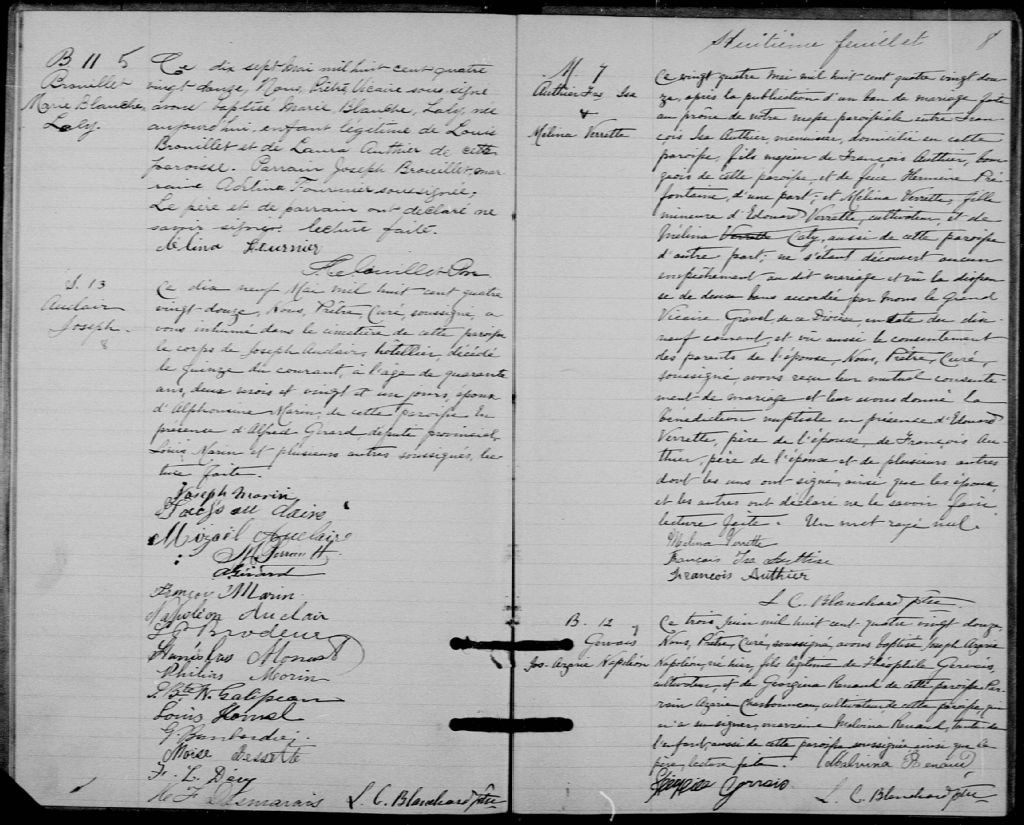 B 11 5
Brouillet
Marie Blanche,
Laly.
Ce dix sept Mai mil huit cent quatre
vingt douze, Nous, Prêtre Vicaire sous signé
avons baptisé Marie Blanche, Laly, née
aujourd'hui, enfant légitime de Louis
Brouillet et de Laura Authier de cette
paroisse. Parrain Joseph Brouillet, mar
raine Adelina Fournier soussignée,
Le père et de parrain ont déclaré ne
savoir signer. lecture faite.
Adelina Fournier
S. 13
Auclair
Joseph.
8
Ce dix neuf Mai mil huit cent quatre
vingt-douze, Nous, Prêtre, Curé, soussigné, a
vons inhumé dans le cimetière de cette paroisse
le corps de Joseph Auclair, hotellier, décédé
le quinze du courant, à l'âge de quarante
ans, deux mois et vingt et un jours, époux
d'Alphonsine Marin, de cette paroisse. En
présence d'Alfred Girard, député provincial,
Louis Marin et plusieurs autres soussignés, lec
ture faite.
Joseph Morin
Jacques au clairs
Mizaël Auclaire
AGirard
François Marin
Napoléon Auclair
Brodeur
Stanislas Monast
Philias Morin
J. Bte N. Galipeau
Louis Hamel
Moïse Bessette
F. L. Déry
Desmarais L. C. Blanchard ptre
Huitième feuillet 8
M. 7
Authier Frs Isa
&
Melina Verrette
Ce vingt quatre Mai mil huit cent quatre vingt dou
ze, après la publication d'un ban de mariage faite
au prône de notre messe paroissiale entre Fran
çois Isa Authier, menuisier, domicilié en cette
paroisse, fils majeur de François Authier, bour
geois de cette paroisse, et de feue Hermine Pré
fontaine, d'une part; et Mélina Verrette, fille
mineure d'Edouard Verrette, cultivateur, et de
Mélina Verrette Caty, aussi de cette paroisse
d'autre part; ne s'étant découvert aucun
empêchement au dit mariage et vu la dispen
se de deux bans accordée par Mons le Grand
Vicaire Gravel, de ce Diocèse, en date du dix-
neuf courant, et vu aussi le consentement
des parents de l'épouse, Nous, Prêtre, Curé,
soussigné, avons reçu leur mutuel consente-
ment de mariage et leur avons donné la
bénédiction nuptiale en présence d'Edouard
Verrette, père de l'épouse, de François Au-
thier, père de l'époux et de plusieurs autres
dont les uns ont signé, ainsi que les époux,
et les autres ont déclaré ne le savoir faire,
lecture faite. Un mot rayé nul.
Melina Verrette
François Isa Authier
François Authier
L. C. Blanchard ptre
B. 12
7
Gervais
Jos. Azarie Napoléon
Ce trois Juin mil huit cent quatre vingt douze
Nous, Prêtre, Curé, soussigné, avons baptisé Joseph Azarie
Napoléon, né hier, fils légitime de Théophile Gervais,
cultivateur, et de Georgina Renaud de cette paroisse. Par
rain Azarie Charbonneau, cultivateur de cette paroisse, qui
n'a su signer, marraine Malvina Renaud, tante de
l'enfant, aussi de cette paroisse soussignée ainsi que le
père, lecture faite. Malvina Renaud
Gervais
L. C. Blanchard ptre